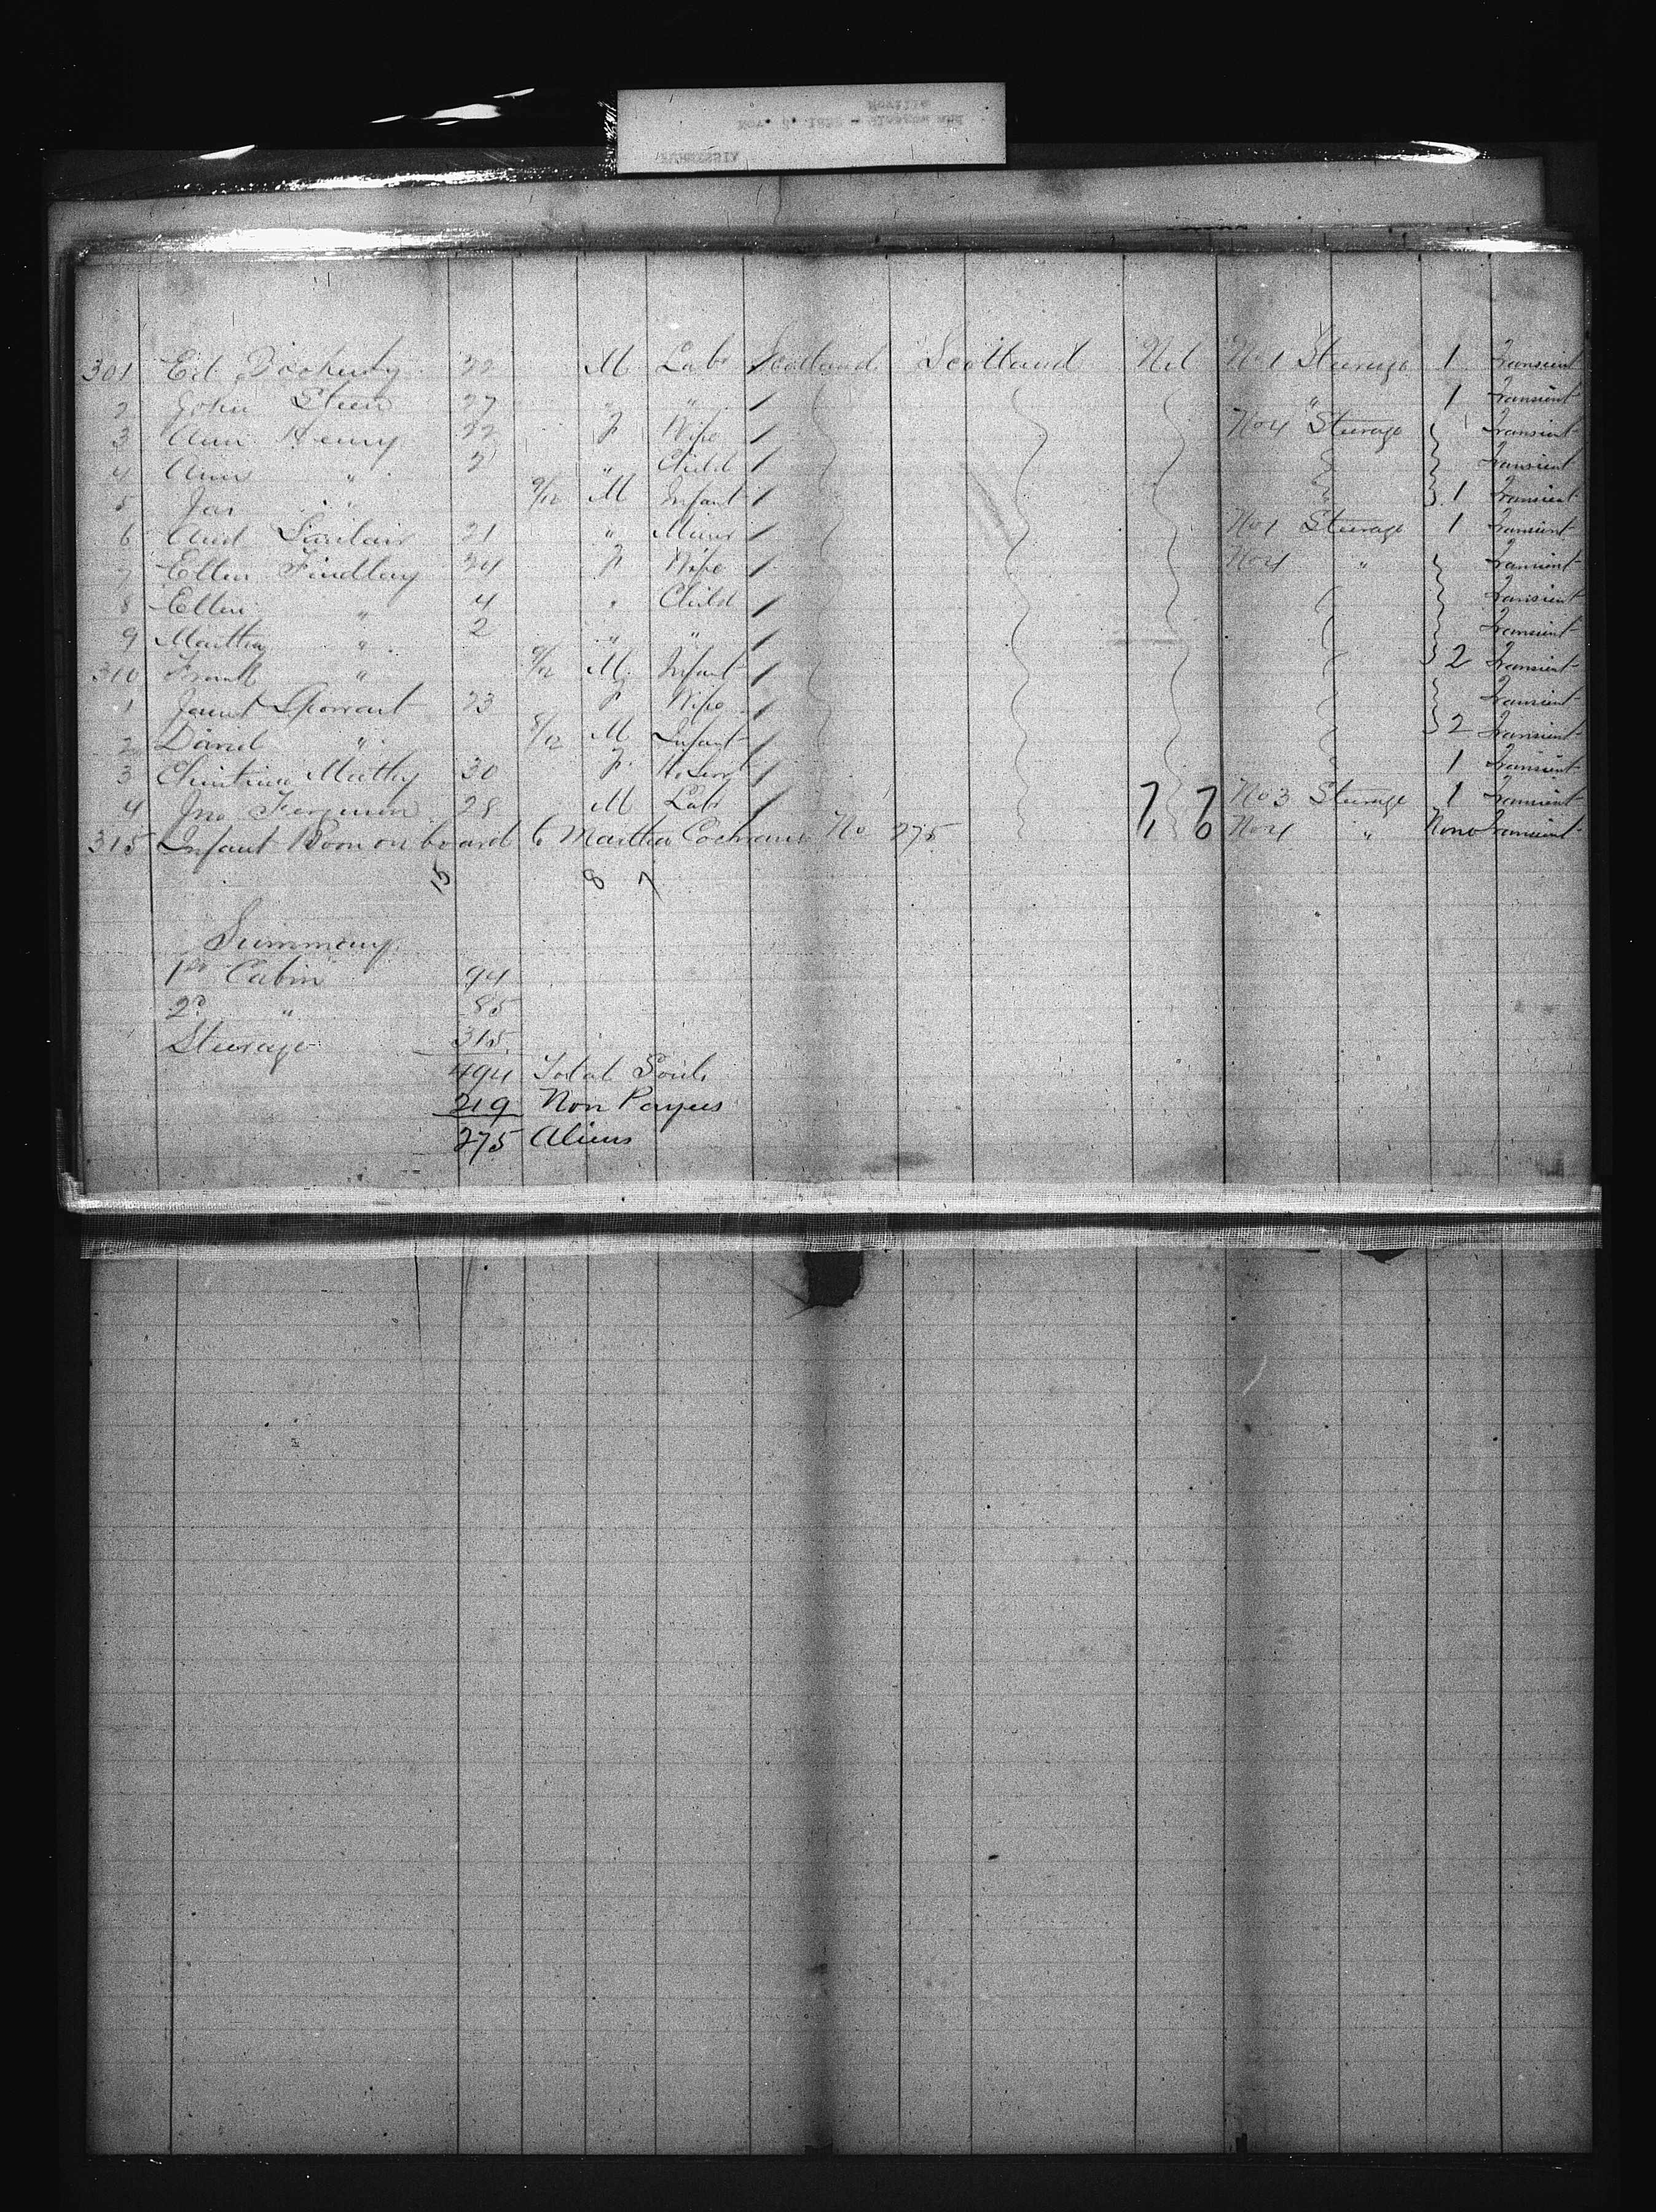 FURNESSIA
Nov. 1892 - Glasgow and
Moville
301 Ed Docherty 22 M Labr Scotland Scotland Nil No 1 Steerage 1 Transient
2 John Steen 27 " " " 1 Transient
3 Ann Henry 22 F Wife No 4 Steerage Transient
4 Ann " 2 " Child Transient
5 Jas " 9/12 M Infant 1 Transient
6 And Sinclair 21 " Miner No 1 Steerage 1 Transient
7 Ellen Findlay 24 F Wife No 4 " Transient
8 Ellen " 4 " Child Transient
9 Martha " 2 " " Transient
310 Frank " 9/12 M Infant 2 Transient
1 Janet Sporrart 23 F Wife Transient
2 David " 8/12 M Infant 2 Transient
3 Christina 30 F Ho Servt 1 Transient
4 Jno Ferguson 28 M Labr 7 7 No 3 Steerage 1 Transient
315 Infant Born on board to Martha Cochrane No 275 1 6 No 4 " None Transient
15 8 7
Summary
1st Cabin 94
2d " 85
Steerage 315
494 Total Souls
219 Non Payees
275 Aliens